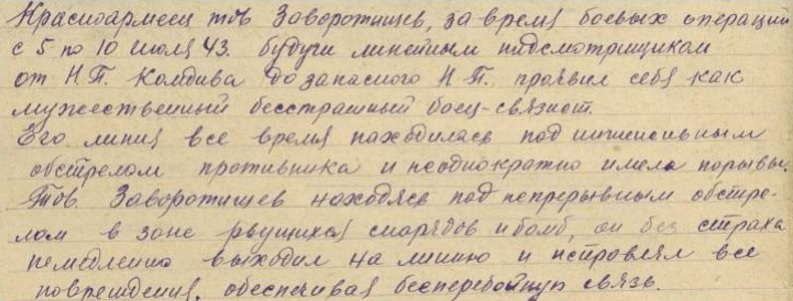 Красноармеец тов Заворотищев, за время боевых операций
с 5 по 10 июля 43. будучи линейным надсмотрщиком
от Н.П. Комдива до запасного Н.П. проявил себя как
мужественный бесстрашный боец-связист.
Его линия все время находилась под интенсивным
обстрелом противника и неоднократно имела порывы.
Тов. Заворотищев находясь под непрерывным обстре-
лом в зоне рвущихся снарядов и бомб, он без страха
немедленно выходил на линию и исправлял все
повреждения, обеспечивая бесперебойную связь.